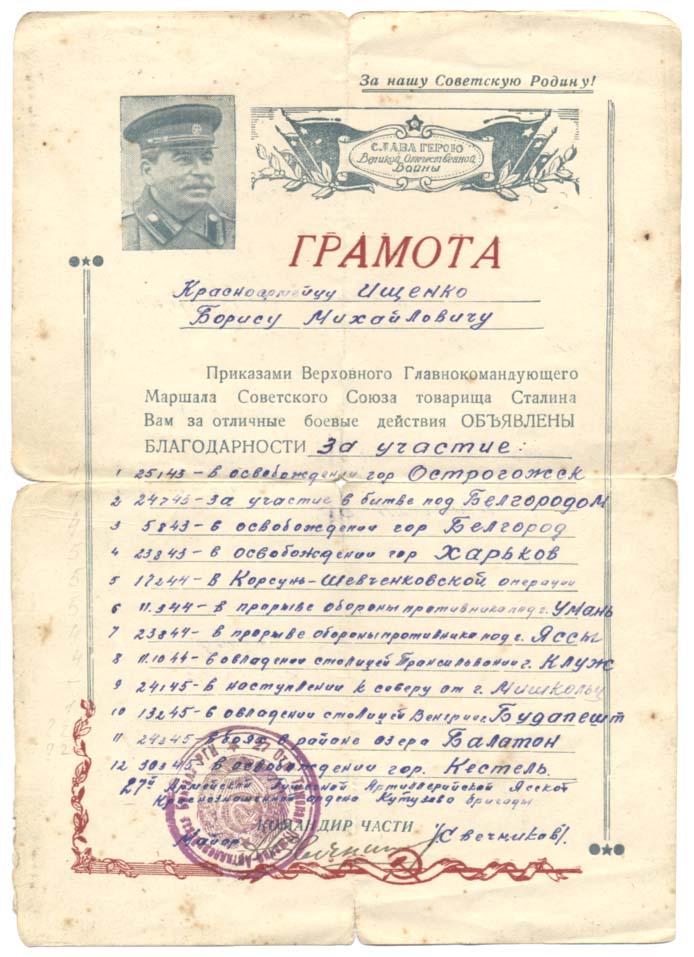 За нашу Советскую Родину!
СЛАВА ГЕРОЮ
Великой Отечественной
Войны
ГРАМОТА
Красноармейцу Ищенко
Борису Михайловичу
Приказами Верховного Главнокомандующего
Маршала Советского Союза товарища Сталина
Вам за отличные боевые действия ОБЪЯВЛЕНЫ
БЛАГОДАРНОСТИ за участие:
1 25.1.43 – в освобождении гор Острогожск
2 24.7.43 – за участие в битве под Белгородом
3 5.8.43 – в освобождении гор Белгород
4 23.8.43 – в освобождении гор Харьков
5 17.2.44 – в Корсунь-Шевченковской операции
6 11.3.44 – в прорыве обороны противника под г. Умань
7 23.8.44 – в прорыве обороны противника под г. Яссы
8 11.10.44 – в овладении столицей Трансильвании г. Клуж
9 24.1.45 – в наступлении к северу от г. Мишкольц
10 13.2.45 – в овладении столицей Венгрии г. Будапешт
11 24.3.45 – в боях в районе озера Балатон
12 30.3.45 – в освобождении гор. Кестель.
27ой Армейской Пушечной Артиллерийской Ясской
Краснознаменной ордена Кутузова бригады
КОМАНДИР ЧАСТИ
Майор /Свечников/.